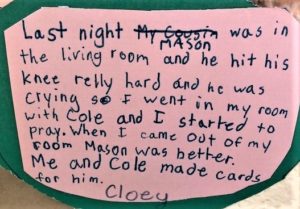 Last night My Cousin was in
MASON
the living room and he hit his
knee relly hard and he was
crying so I went in my room
with Cole and I started to
pray. When I came out of my
room Mason was better.
Me and Cole made cards
for him.
Cloey